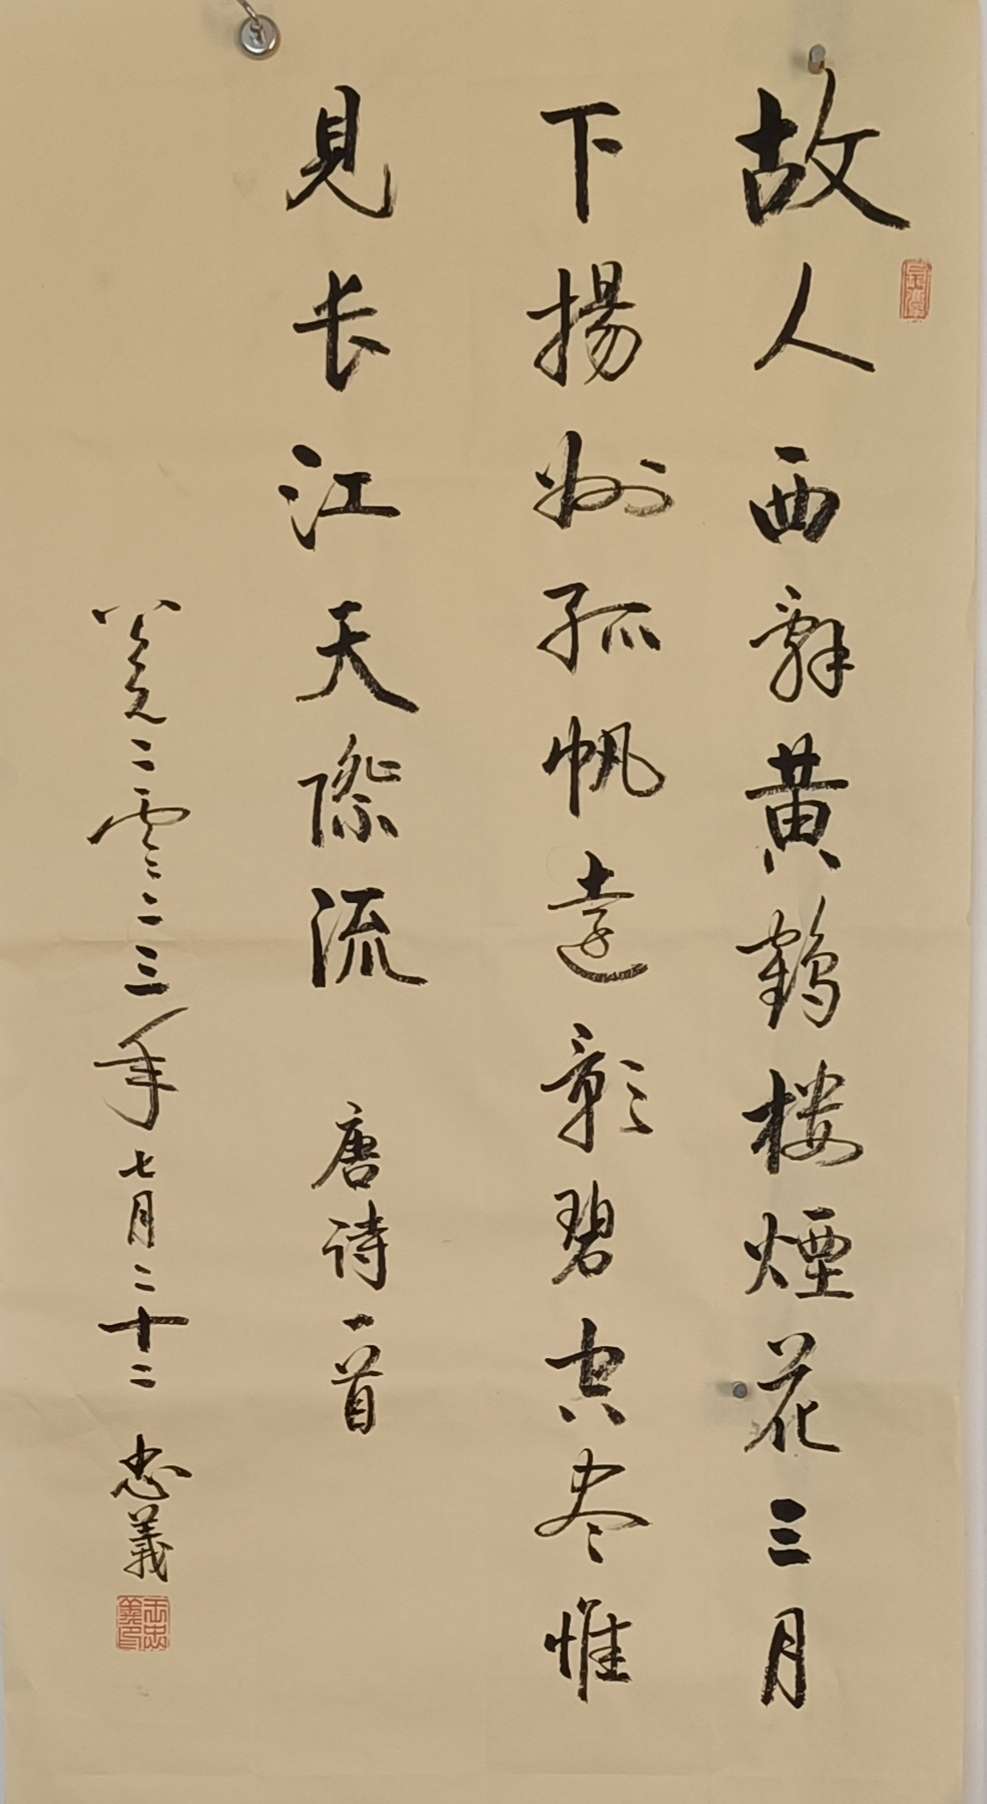 故人西辭黄鶴楼煙花三月
下揚州孤帆遠彰碧空尽惟
見长江天際流 唐诗一首
公元二零二三年七月二十二 忠義